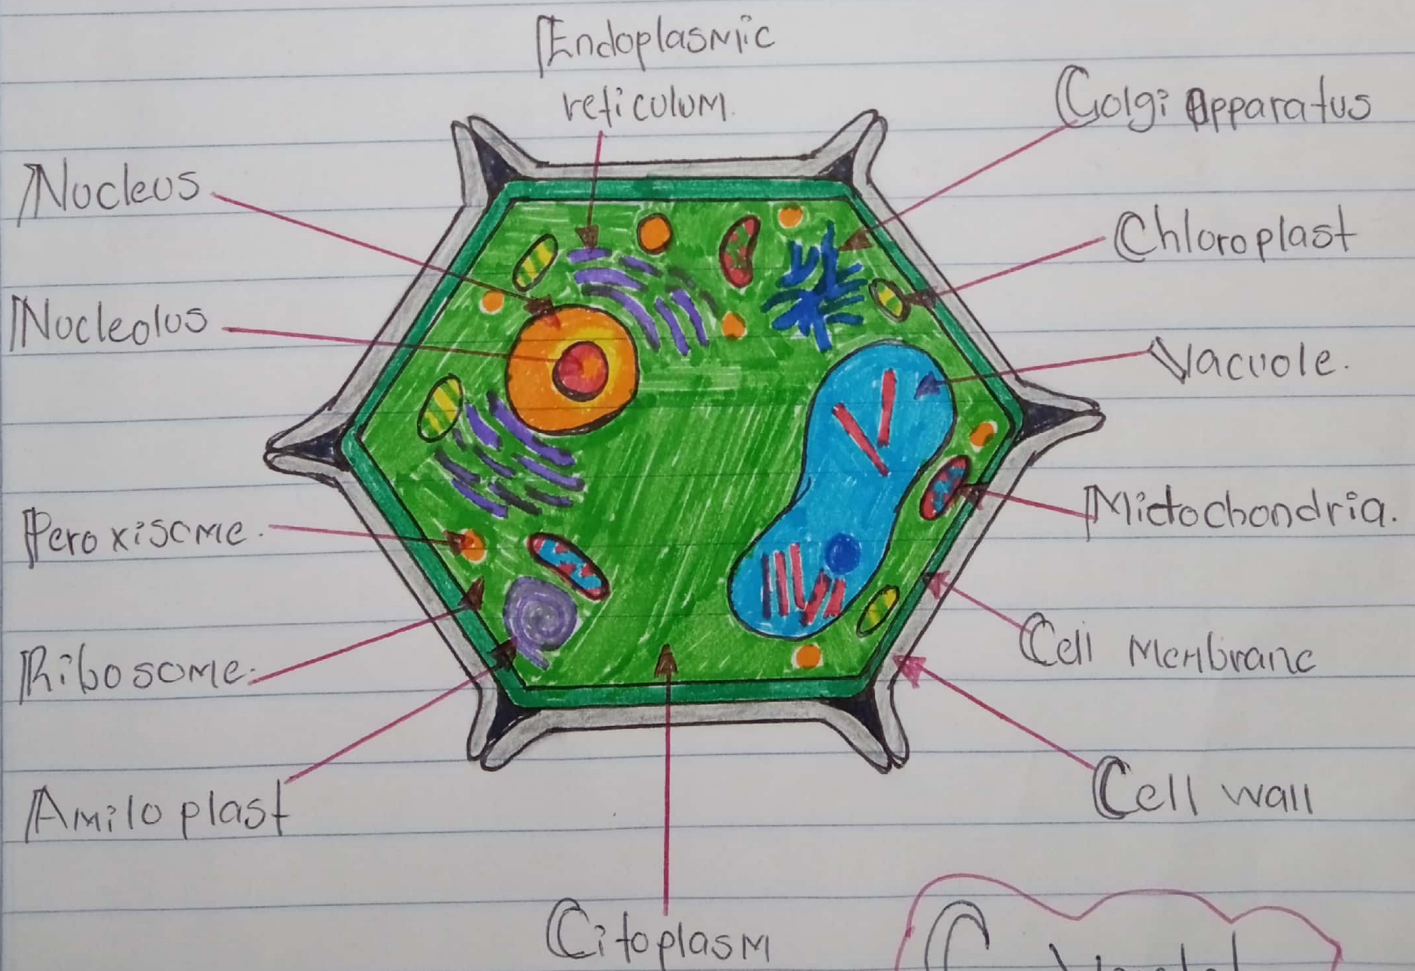 Endoplasmic
reticulum.
Golgi Apparatus
Nucleus
Chloroplast
Nucleolus
Vacuole.
Peroxisome.
Mictochondria.
Ribosome.
Cell Membrane
Amiloplast
Cell wall
Citoplasm